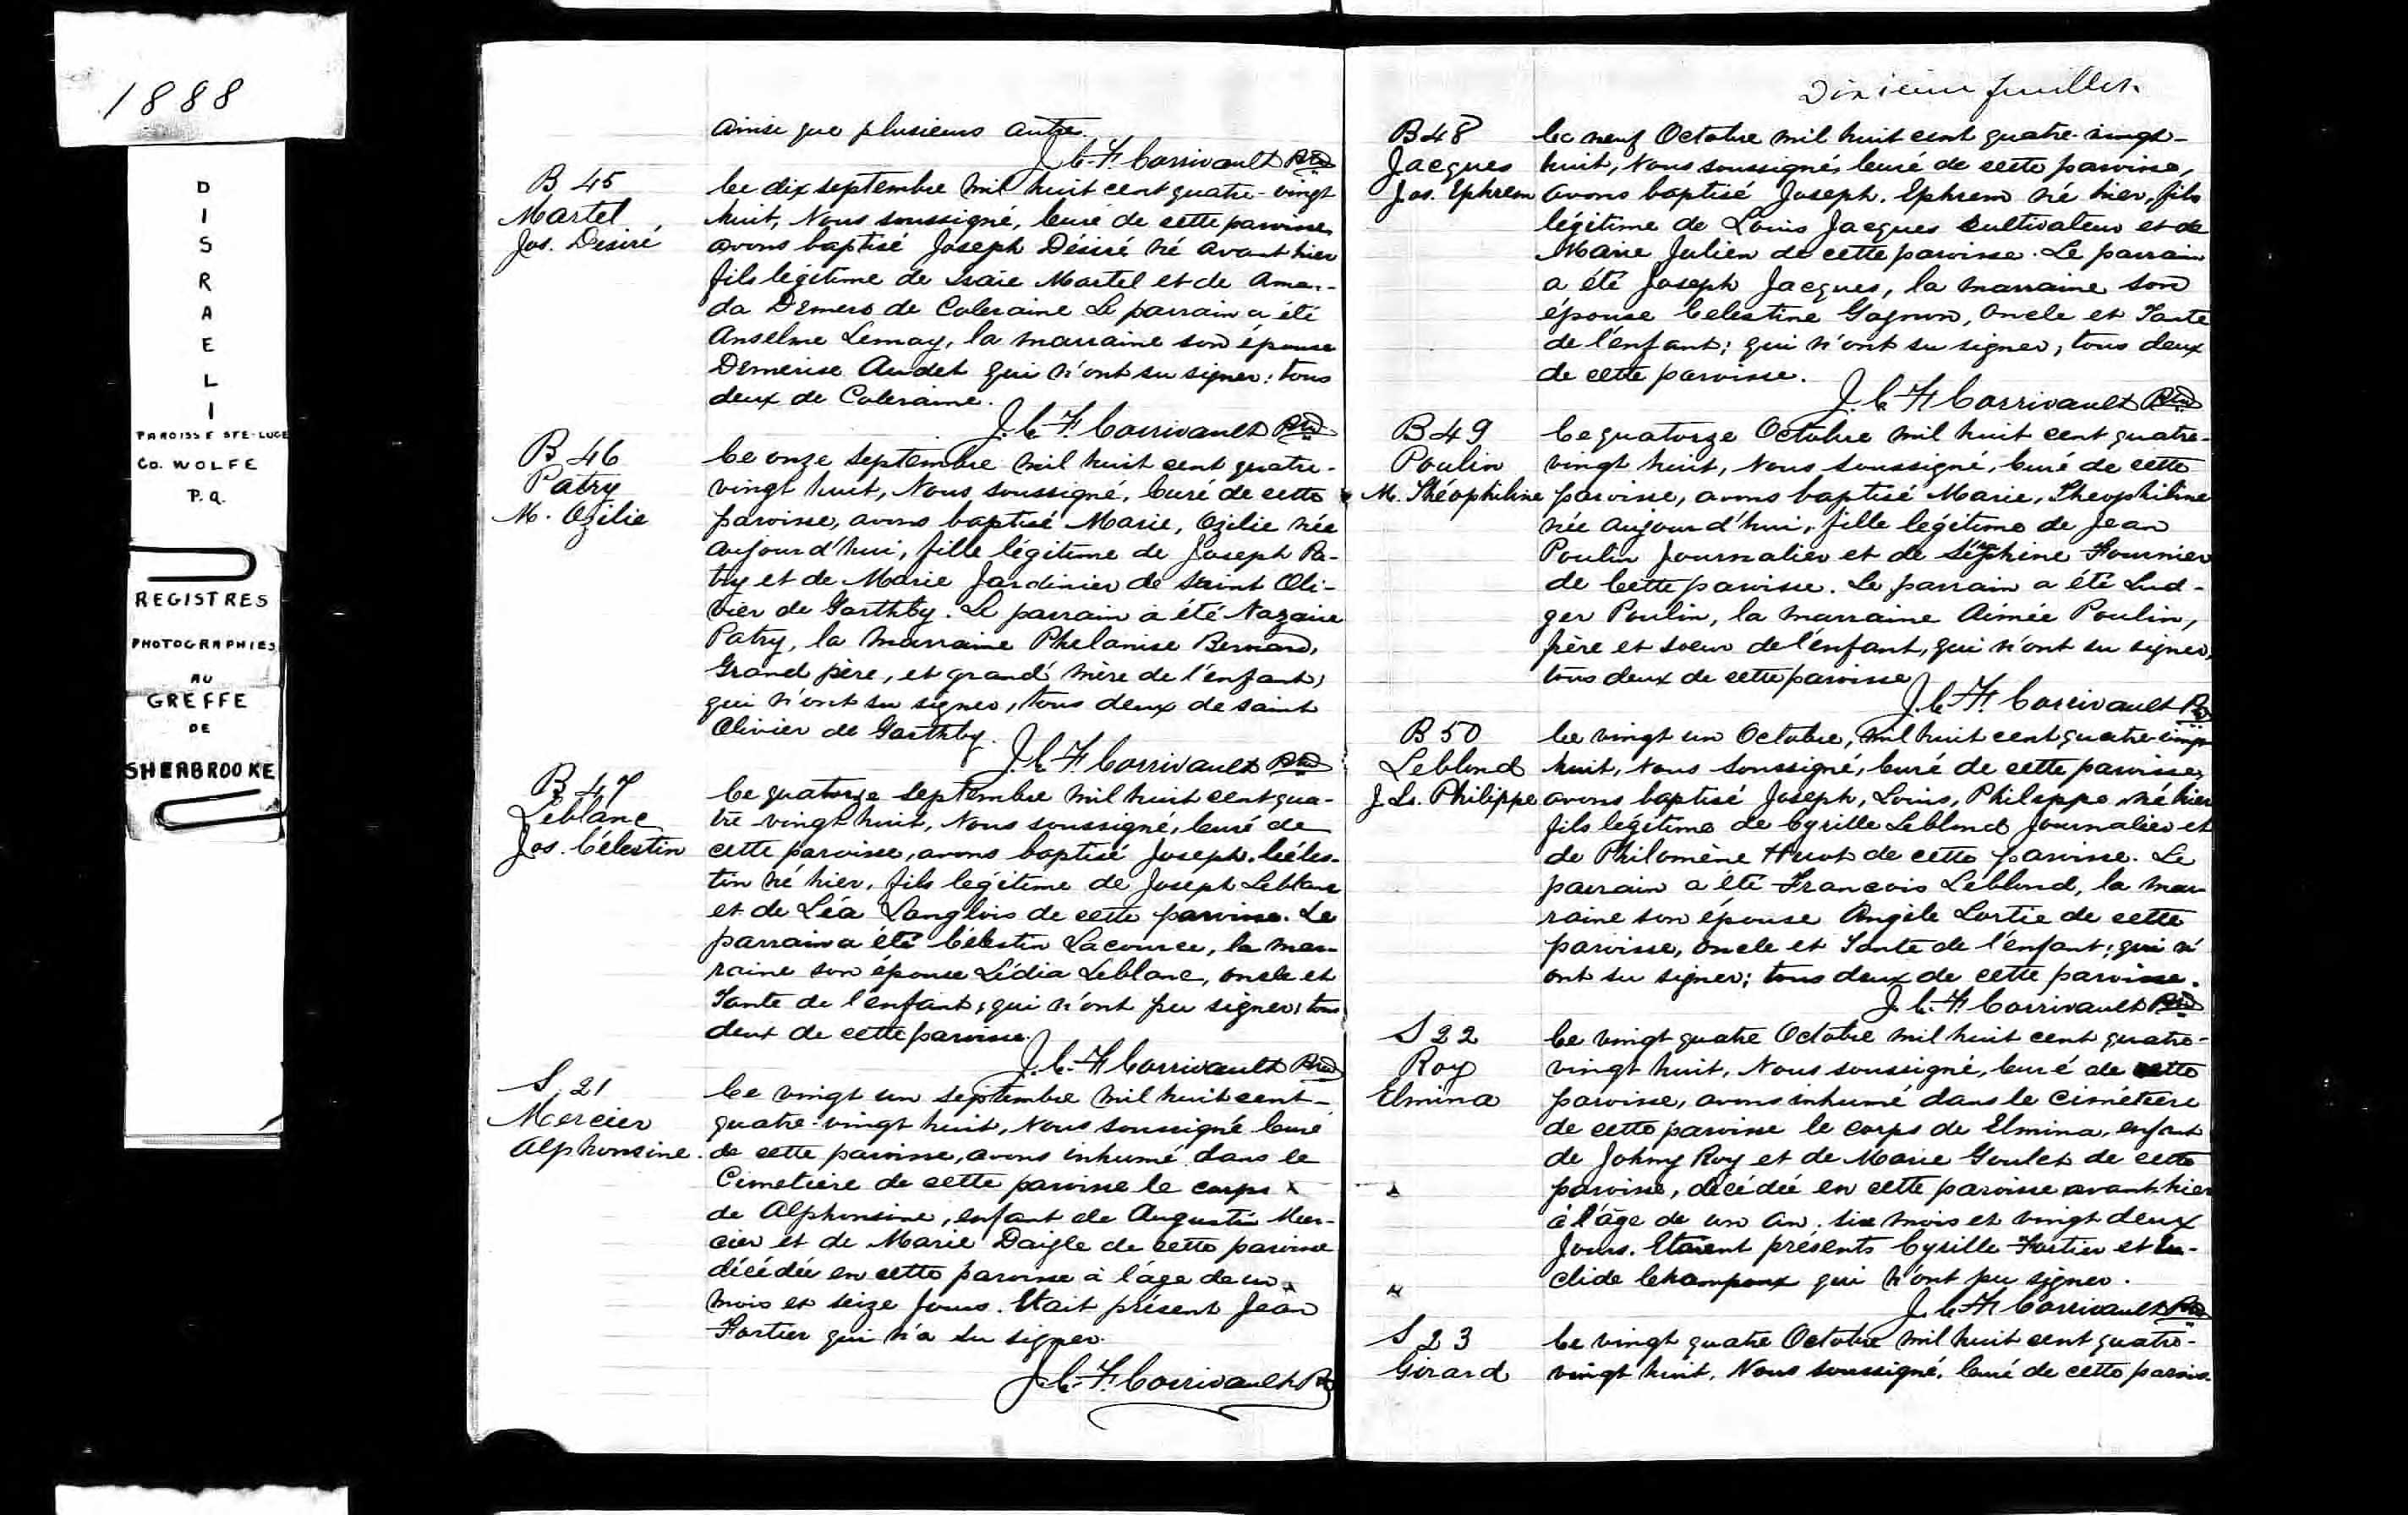 1888
DISRAELI
PAROISSE STE-LUCE
Co. WOLFE
P.Q.
REGISTRES
PHOTOGRAPHIES
AU
GREFFE
DE
SHERBROOKE
ainsi que plusieurs autre.
J. C. F. Corrivault Ptre
B 45
Martel
Jos. Désiré
Ce dix septembre mil huit cent quatre-vingt
huit, Nous soussigné, Curé de cette paroisse
avons baptisé Joseph Désiré né avant hier
fils légitime de Isaïe Martel et de Aman-
da Demers de Coleraine Le parrain a été
Anselme Lemay, la marraine son épouse
Demerise Audet qui n'ont su signer: tous
deux de Coleraine.
J. C. F. Corrivault Ptre
B 46
Patry
M. Ozilie
Ce onze septembre mil huit cent quatre-
vingt huit, Nous soussigné, Curé de cette
paroisse, avons baptisé Marie, Ozilie née
aujourd'hui, fille légitime de Joseph Pa-
try et de Marie Jardinier de Saint Oli-
vier de Garthby. Le parrain a été Nazaire
Patry, la marraine Phelanise Bernard,
Grand père, et grand' mère de l'enfant,
qui n'ont su signer, tous deux de saint
Olivier de Garthby.
J. C. F. Corrivault Ptre
B 47
Leblanc
Jos. Célestin
Ce quatorze septembre mil huit cent qua-
tre vingt huit, Nous soussigné, Curé de
cette paroisse, avons baptisé Joseph, Céles-
tin né hier, fils légitime de Joseph Leblanc
et de Léa Langlois de cette paroisse. Le
parrain a été Célestin Lacource, la mar-
raine son épouse Lédia Leblanc, oncle et
Tante de l'enfant, qui n'ont pu signer, tous
deux de cette paroisse.
J. C. F. Corrivault Ptre
S. 21
Mercier
Alphonsine.
Ce vingt un septembre mil huit cent-
quatre-vingt huit, Nous soussigné Curé
de cette paroisse, avons inhumé dans le
Cimetière de cette paroisse le corps x
de Alphonsine, enfant de Augustin Mer-
cier et de Marie Daigle de cette paroisse
décédée en cette paroisse à l'âge de un x
mois et seize jours. Etait présent Jean
Fortier qui n'a su signer.
J. C. F. Corrivault Ptre
Dixième feuillet.
B 48
Jacques
Jos. Ephrem
Ce neuf Octobre mil huit cent quatre-vingt-
huit, Nous soussigné, Curé de cette paroisse,
avons baptisé Joseph, Ephrem né hier, fils
légitime de Louis Jacques Cultivateur et de
Marie Julien de cette paroisse. Le parrain
a été Joseph Jacques, la marraine son
épouse Celestine Gagnon, oncle et Tante
de l'enfant; qui n'ont su signer, tous deux
de cette paroisse.
J. C. F. Corrivault Ptre
B 49
Poulin
M. Théophiline
Ce quatorze Octobre mil huit cent quatre-
vingt huit, Nous soussigné, Curé de cette
paroisse, avons baptisé Marie, Theophiline
née aujourd'hui, fille légitime de Jean
Poulin Journalier et de Séraphine Fournier
de Cette paroisse. Le parrain a été Lud-
ger Poulin, la marraine Aimée Poulin,
frère et soeur de l'enfant, qui n'ont su signer,
tous deux de cette paroisse
J. C. F. Corrivault Ptre
B 50
Leblond
J. Ls. Philippe
Ce vingt un Octobre, mil huit cent quatre-vingt
huit, Nous soussigné, Curé de cette paroisse,
avons baptisé Joseph, Louis, Philippe né hier
fils légitime de Cyrille Leblond Journalier et
de Philomène Huot de cette paroisse. Le
parrain a été Francois Leblond, la mar
raine son épouse Angèle Lortie de cette
paroisse, oncle et Tante de l'enfant; qui n'
ont su signer; tous deux de cette paroisse.
J. C. F. Corrivault Ptre
S 22
Roy
Elmina
Ce vingt quatre Octobre mil huit cent quatre-
vingt huit, Nous soussigné, Curé de cette
paroisse, avons inhumé dans le cimétière
de cette paroisse le corps de Elmina, enfant
de Johny Roy et de Marie Goulet de cette
paroisse, décédée en cette paroisse avant hier
à l'âge de un an. six mois et vingt deux
jours. Etaient présents Cyrille Fortier et Eu-
clide Champoux qui n'ont pu signer.
J. C. F. Corrivault Ptre
S 23
Girard
Ce vingt quatre Octobre mil huit cent quatre-
vingt huit, Nous soussigné, Curé de cette parois-